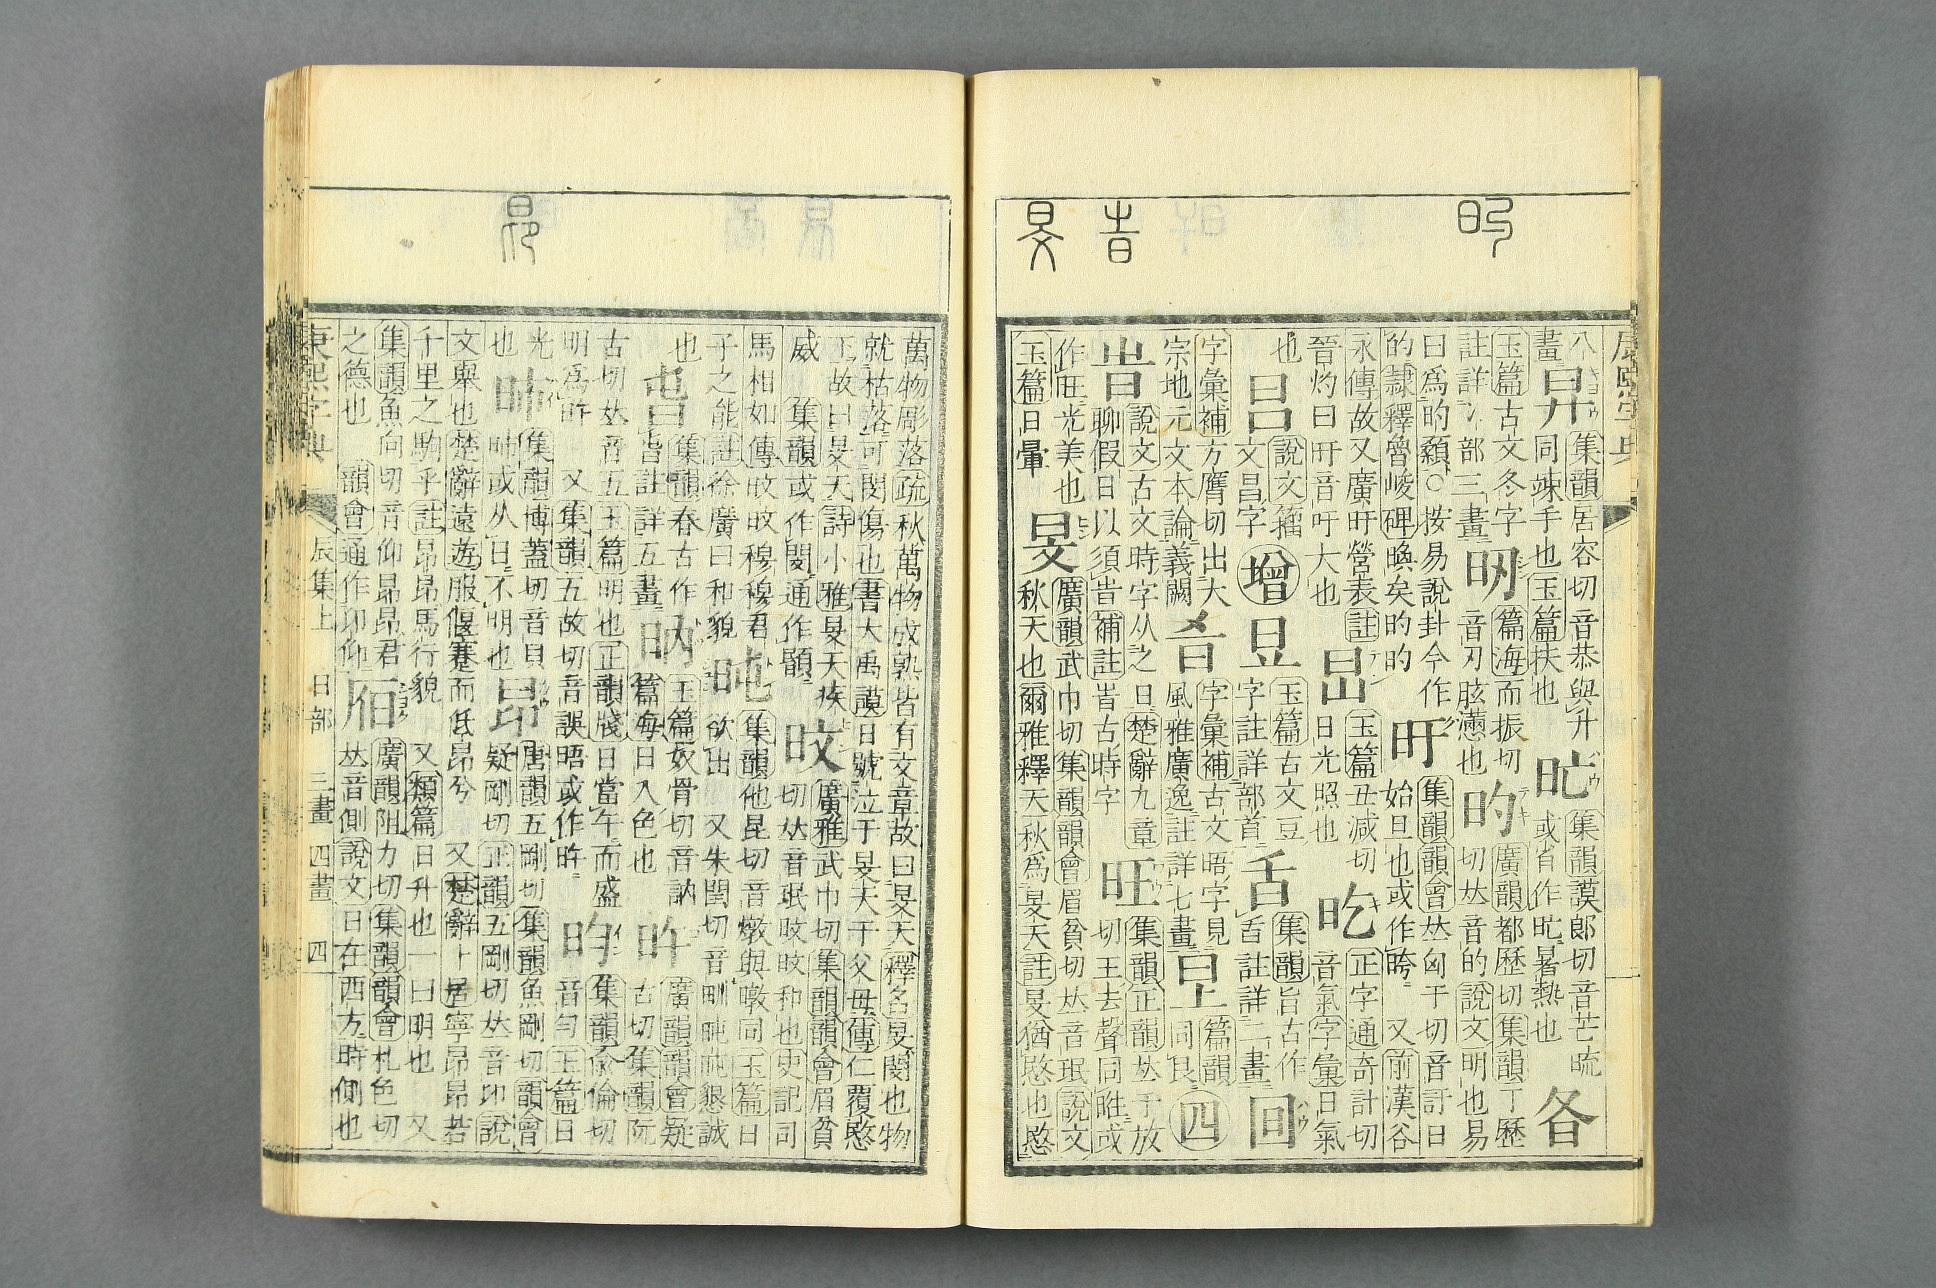 昇 集韻居容切音恭與廾
同竦手也玉篇扶也
集韻謨郎切音芒
暑熱也
各
玉篇古文冬字
註詳冫部三畫
篇海而振切
音刃眩懣也
旳
廣韻都歷切集韻丁歷
切𠀤音的說文明也易
曰爲旳顙○按易說卦今作
的隷釋魯峻碑喚矣旳旳
旴
集韻韻會𠀤匈于切音訏日
始旦也或作晇 又前漢谷
永傳故又廣旴營表註
晉灼曰旴音吁大也
旵
玉篇丑減切
日光照也
正字通奇計切
音氣字彙日氣
也
說文籀
文昌字
增
玉篇古文豆
字註詳部首
舌
集韻旨古作
舌註詳二畫
字彙補方膺切出大
宗地元文本論義闕
字彙補古文晤字見
風雅廣逸註詳七畫
篇韻
同艮
四
旹
說文古文時字从之日楚辭九章
聊假日以須旹補註旹古時字
旺
集韻正韻𠀤于放
切王去聲同暀或
作旺光美也
玉篇日暈
旻
廣韻武巾切集韻韻會眉貧切𠀤音珉說文
秋天也爾雅釋天秋爲旻天註旻猶愍也愍
萬物彫落疏秋萬物成熟皆有文章故曰旻天釋名旻閔也物
就枯落可閔傷也書大禹謨日號泣于旻天于父母傳仁覆愍
下故曰旻天詩小雅旻天疾
威 集韻或作閔通作
旼
廣雅武巾切集韻韻會眉貧
切𠀤音珉旼旼和也史記司
馬相如傳旼旼穆穆君
子之能註徐廣曰和貌
旽
集韻他昆切音燉與暾同玉篇日
欲出 又朱閏切音㽙旽旽懇誠
也
旾
集韻春古作
旾註詳五畫
玉篇奴骨切音訥
篇海日入色也
旿
廣韻韻會疑
古切集韻阮
古切𠀤音五玉篇明也正韻牋日當午而盛
明爲旿 又集韻五故切音誤晤或作旿
昀
集韻兪倫切
音勻玉篇日
光
也
昁
集韻博蓋切音貝
昁或从日不明也
昂
唐韻五剛切集韻魚剛切韻會
疑剛切正韻五剛切𠀤音卬說
文舉也楚辭遠遊服偃蹇而低昂兮 又楚辭卜居寧昂昂若
千里之駒乎註昂昂馬行貌 又類篇日升也一曰明也 又
集韻魚向切音仰昂昂君
之德也 韻會通作卬仰
廣韻阻力切集韻韻會札色切
𠀤音側說文日在西方時側也
康熙字典 辰集上 日部 三畫 四畫 四